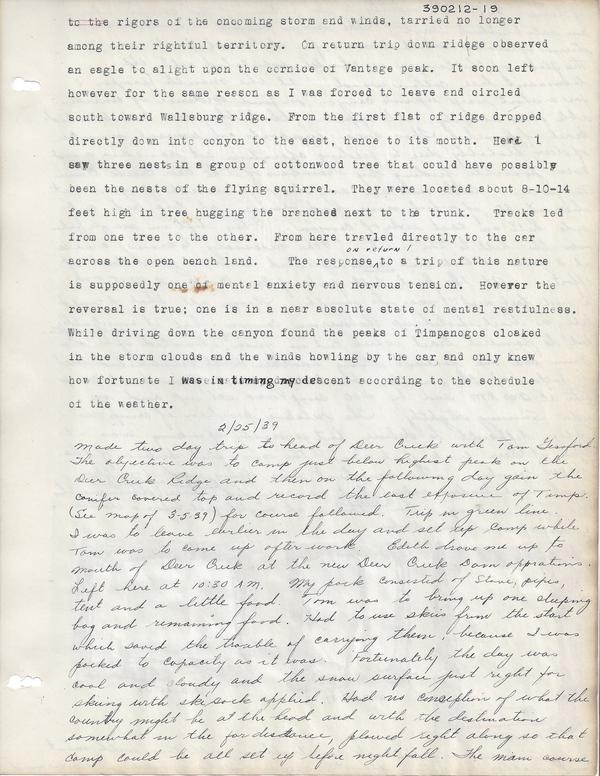 390212-19
to the rigors of the oncoming storm and winds, tarried no longer
among their rightful territory. On return trip down ridege observed
an eagle to alight upon the cornice of Vantage peak. It soon left
however for the same reason as I was forced to leave and circled
south toward Wallsburg ridge. From the first flat of ridge dropped
directly down into conyon to the east, hence to its mouth. Here I
saw three nests in a group of cottonwood tree that could have possibly
been the nests of the flying squirrel. They were located about 8-10-14
feet high in tree hugging the branched next to the trunk. Tracks led
from one tree to the other. From here travled directly to the car
on return /
across the open bench land. The response, to a trip of this nature
is supposedly one of mental anxiety and nervous tension. However the
reversal is true; one is in a near absolute state of mental restiulness.
While driving down the canyon found the peaks of Timpanogos cloaked
in the storm clouds and the winds howling by the car and only knew
how fortunate I was in timing my descent according to the schedule
of the weather.
2/25/39
Made two day trip to head of Deer Creek with Tom
The objective was to camp just below highest peak on the
Deer Creek Ridge and then on the following day gain the
conifer covered top and record the east exposure of Timp.
(See map of 3-5-39) for course followed. Trip in green line.
I was to leave earlier in the day and set up camp while
Tom was to come up after work. Edith drove me up to
mouth of Deer Creek at the new Deer Creek Dam opprations.
Left here at 10:30 A.M. My pack consisted of Stove, pipes,
tent and a little food. Tom was to bring up one sleeping
bag and remaining food. Had to use skiis from the start
which saved the trouble of carrying them, because I was
packed to capacity as it was. Fortunately the day was
cool and cloudy and the snow surface just right for
skiing with ski sock applied. Had no conception of what the
country might be at the head and with the destination
somewhat in the far distance, plowed right along so that
camp could be all set up before night fall. The main course